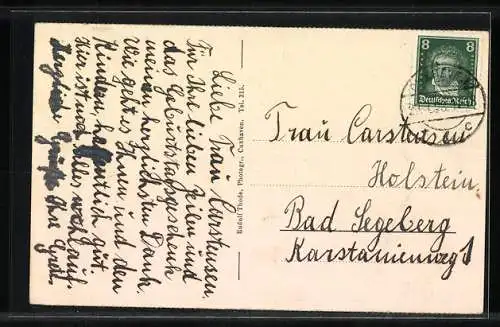 Liebe Frau Carstensen.
Für Ihr lieben Zeilen und
das Geburtstagsgeschenk
meinen herzlichsten Dank.
Wie geht es Ihnen und den
Kindern, hoffentlich gut
Hier ist noch alles wohlauf.
Herzliche Grüße Ihre
Rudolf Thode, Photogr., Cuxhaven. Tel. 215.
8 8
Deutsches Reich
Frau Carstensen
Holstein.
Bad Segeberg
Karstanienweg 1